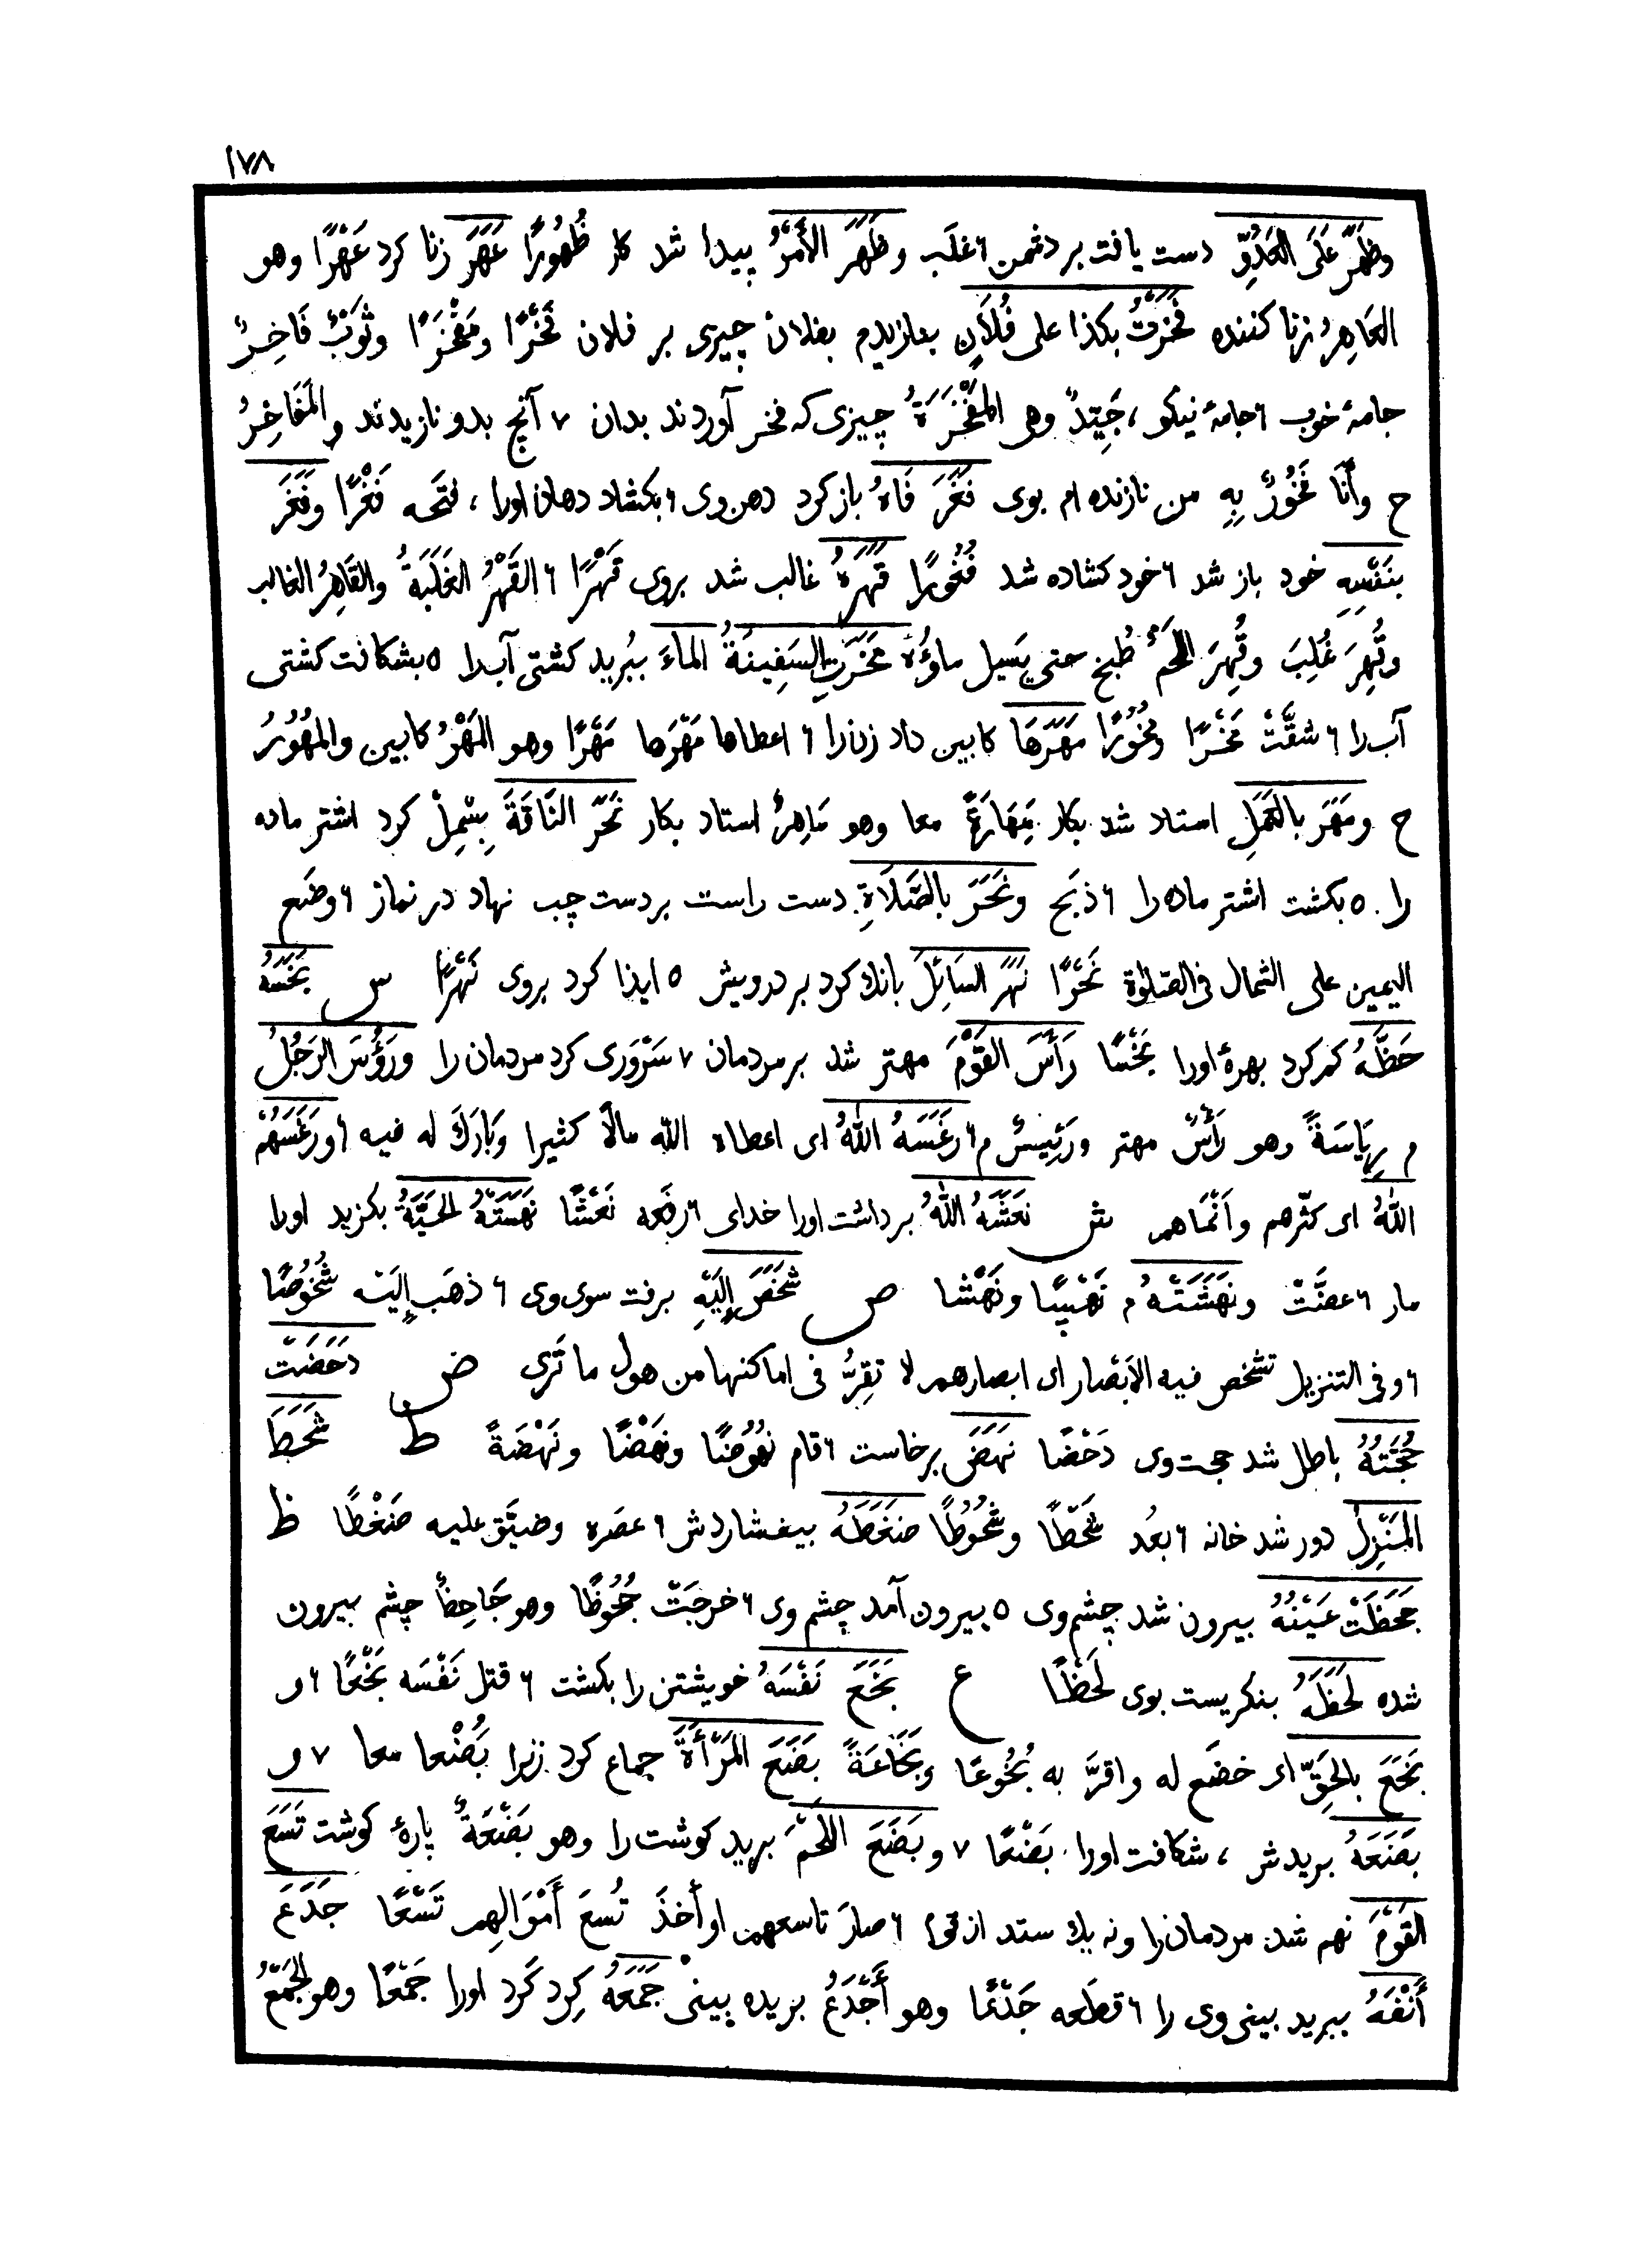 ١٧٨
وظَهَرَ عَلَى العَدُوِّ دست یافت بر دشمن ۶ غلَب وظَهَرَ الأَمْرُ پیدا شد کار ظُهُورًا عَهَرَ زنا کرد عَهْرًا وهو
العَاهِرُ زنا کننده فَخَرْتُ بکذا علی فُلاَنٍ بنازیدم بفلان چیزی بر فلان فَخْرًا ومَفْخَرًا وثَوْبٌ فَاخِرٌ
جامهٔ خوب ۶ جامهٔ نیکو، جَیِّدٌ وهی المَفْخَرَةُ چیزی که فخر آوردند بدان ۷ آنچ بدو نازیدند والمَفَاخِرُ
ح وأَنَا فَخُورٌ بِهِ من نازنده ام بوی فَغَرَ فَاهُ باز کرد دهن وی ۶ بکشاد دهان اورا، فتَحه فَغْرًا وفَغَرَ
بنَفْسِهِ خود باز شد ۶ خود کشاده شد فُغُورًا قَهَرَهُ غالب شد بروی قَهْرًا ۶ القَهْرُ الغَلَبَةُ والقَاهِرُ الغالب
وقُهِرَ غُلِبَ وقُهِرَ اللَّحْمُ طُبخ حتی یَسیل ماؤُهُ مَخَرَتِ السَفِینَةُ المَاءَ ببُرید کشتی آب را ٥ بشکافت کشتی
آب را ۶ شقَّتْ مَخْرًا ومُخُورًا مَهَرَهَا کابین داد زن را ۶ اعطاها مَهْرَها مَهْرًا وهو المَهْرُ کابین والمُهُورُ
ح ومَهَرَ بالعَمَلِ استاد شد بکار مَِهَارَةً معا وهو مَاهِرٌ استاد بکار نَحَرَ النَّاقَةَ بِسْمِلْ کرد اشتر ماده
را ٥ بکشت اشتر ماده را ۶ ذبَح ونَحَرَ بالصَّلَاةِ دست راست بر دست چپ نهاد در نماز ۶ وضَع
الیمین علی الشمال فی الصَلوٰة نَحْرًا نَهَرَ السَائِلَ بانك کرد بر درویش ٥ ایذا کرد بروی نَهْرًا س بَخَسَهُ
حَظَّهُ کم کرد بهرهٔ اورا بَخْسًا رَأَسَ القَوْمَ مهتر شد بر مردمان ۷ سَرْوَری کرد مردمان را ورَؤُسَ الرَجُلُ
م رِیَاسَةً وهو رَأْسٌ مهتر ورَئِیسٌ م ۶ رغَسَهُ اللّٰهُ ای اعطاه الله مالًا کثیرا وبَارَكَ له فیه ۶ ورَغَسَهُمْ
اللّٰهُ ای کثّرهم وأَنْمَاهم ش نعَشَهُ اللّٰهُ برداشت اورا خدای ۶ رفَعه نَعْشًا نَهَسَتْهُ الحَیَّةُ بکزید اورا
مار ۶ عضَّتْ ونَهَشَتْهُ م نَهْسًا ونَهْشًا ص شَخَصَ إلَیْهِ برفت سوی وی ۶ ذهَب إلَیْه شُخُوصًا
۶ وفی التنزیل تشْخص فیه الاَبْصار ای ابصارهم لا تقِرُّ فی اماکنها من هول ما تَری ض دَحَضَتْ
حُجَّتُهُ باطل شد حجت وی دَحْضًا نَهَضَ برخاست ۶ قام نُهُوضًا ونَهْضًا ونَهْضَةً ط شَحَطَ
المَنْزِلُ دور شد خانه ۶ بعُد شَحْطًا وشُحُوطًا ضَغَطَهُ بیفشاردش ۶ عصَره وضیَّق علیه ضَغْطًا ظ
جَحَظَتْ عَیْنُهُ بیرون شد چشم وی ٥ بیرون آمد چشم وی ۶ خرجَتْ جُحُوظًا وهو جَاحِظٌ چشم بیرون
شده لَحَظَهُ بنکریست بوی لَحْظًا ع بَخَعَ نَفْسَهُ خویشتن را بکشت ۶ قتل نَفْسَه بَخْعًا ۶ و
بَخَعَ بالحَقِّ ای خضَع له واقرَّ به بُخُوعًا وبَخَاعَةً بَضَعَ المَرْأَةَ جماع کرد زنرا بَُضْعا معا ۷ و
بَضَعَهُ بریدش، شکافت اورا بَضْعًا ۷ وبَضَعَ اللَّحْمَ برید کوشت را وهو بَضْعَةٌ پارهٔ کوشت تَسَعَ
القَوْمَ نهم شد مردمان را و نه یك ستد از قوم ۶ صارَ تاسعهم او أَخذَ تُسعَ أَمْوَالِهم تَسْعًا جَدَعَ
أَنْفَهُ ببرید بینی وی را ۶ قطَعه جَدْعًا وهو أَجْدَعُ بریده بینی جَمَعَهُ کِرد کَرد اورا جَمْعًا وهو الجَمْعُ